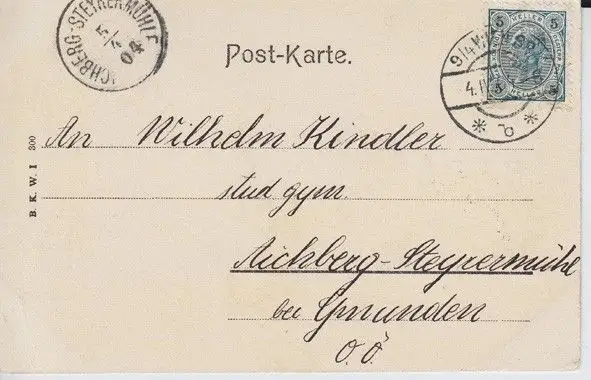 AICHBERG-STEYRERMÜHLE
5/4
04
Post-Karte.
5 HELLER 5
5 5
4.IV
An Wilhelm Kindler
stud gym.
Aichberg-Steyrermühl
bei Gmunden
O.Ö.
B. K. W. I 300